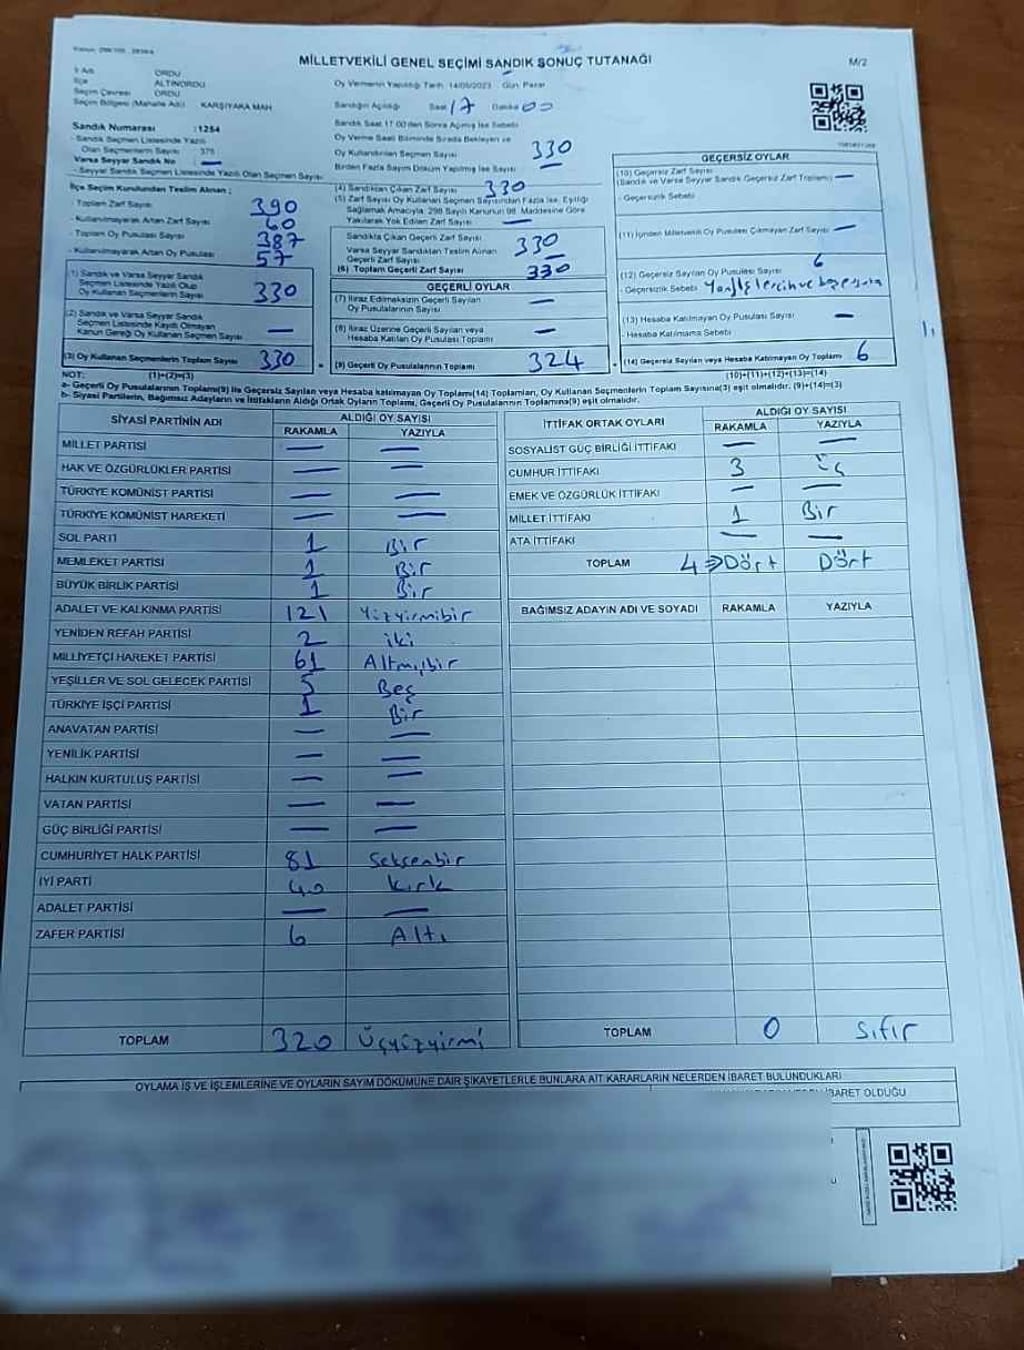 MİLLETVEKİLİ GENEL SEÇİMİ SANDIK SONUÇ TUTANAĞI
M/2
İl Adı ORDU
İlçe ALTINORDU
Seçim Çevresi ORDU
Seçim Bölgesi (Mahalle Adı) KARŞIYAKA MAH
Sandık Numarası : 1254
- Sandık Seçmen Listesinde Yazılı
Olan Seçmenlerin Sayısı 375
Varsa Seyyar Sandık No —
- Seyyar Sandık Seçmen Listesinde Yazılı Olan Seçmen Sayısı
Oy Vermenin Yapıldığı Tarih 14/05/2023 Gün Pazar
Sandığın Açıldığı Saat 17 Dakika 00
Sandık Saat 17.00'den Sonra Açılmış İse Sebebi
Oy Verme Saati Bitiminde Sırada Bekleyen ve
Oy Kullandırılan Seçmen Sayısı 330
Birden Fazla Sayım Döküm Yapılmış İse Sayısı —
İlçe Seçim Kurulundan Teslim Alınan ;
- Toplam Zarf Sayısı 390
- Kullanılmayarak Artan Zarf Sayısı 60
- Toplam Oy Pusulası Sayısı 387
- Kullanılmayarak Artan Oy Pusulası 57
(1) Sandık ve Varsa Seyyar Sandık
Seçmen Listesinde Yazılı Olup
Oy Kullanan Seçmenlerin Sayısı 330
(2) Sandık ve Varsa Seyyar Sandık
Seçmen Listesinde Kaydı Olmayan
Kanun Gereği Oy Kullanan Seçmen Sayısı —
(3) Oy Kullanan Seçmenlerin Toplam Sayısı 330
(4) Sandıktan Çıkan Zarf Sayısı 330
(5) Zarf Sayısı Oy Kullanan Seçmen Sayısından Fazla İse, Eşitliği
Sağlamak Amacıyla, 298 Sayılı Kanunun 98. Maddesine Göre
Yakılarak Yok Edilen Zarf Sayısı —
Sandıkta Çıkan Geçerli Zarf Sayısı 330
Varsa Seyyar Sandıktan Teslim Alınan
Geçerli Zarf Sayısı —
(6) Toplam Geçerli Zarf Sayısı 330
GEÇERLİ OYLAR
(7) İtiraz Edilmeksizin Geçerli Sayılan
Oy Pusulalarının Sayısı —
(8) İtiraz Üzerine Geçerli Sayılan veya
Hesaba Katılan Oy Pusulası Toplamı —
(9) Geçerli Oy Pusulalarının Toplamı 324
GEÇERSİZ OYLAR
(10) Geçersiz Zarf Sayısı
(Sandık ve Varsa Seyyar Sandık Geçersiz Zarf Toplamı) —
- Geçersizlik Sebebi
(11) İçinden Milletvekili Oy Pusulası Çıkmayan Zarf Sayısı —
(12) Geçersiz Sayılan Oy Pusulası Sayısı 6
- Geçersizlik Sebebi
(13) Hesaba Katılmayan Oy Pusulası Sayısı —
- Hesaba Katılmama Sebebi
(14) Geçersiz Sayılan veya Hesaba Katılmayan Oy Toplamı 6
NOT: (1)+(2)=(3)
(10)+(11)+(12)+(13)=(14)
a- Geçerli Oy Pusulalarının Toplamı(9) ile Geçersiz Sayılan veya Hesaba katılmayan Oy Toplamı(14) Toplamları, Oy Kullanan Seçmenlerin Toplam Sayısına(3) eşit olmalıdır. (9)+(14)=(3)
b- Siyasi Partilerin, Bağımsız Adayların ve İttifakların Aldığı Ortak Oyların Toplamı, Geçerli Oy Pusulalarının Toplamına(9) eşit olmalıdır.
SİYASİ PARTİNİN ADI ALDIĞI OY SAYISI
RAKAMLA YAZIYLA
MİLLET PARTİSİ — —
HAK VE ÖZGÜRLÜKLER PARTİSİ — —
TÜRKİYE KOMÜNİST PARTİSİ — —
TÜRKİYE KOMÜNİST HAREKETİ — —
SOL PARTİ 1 Bir
MEMLEKET PARTİSİ 1 Bir
BÜYÜK BİRLİK PARTİSİ 1 Bir
ADALET VE KALKINMA PARTİSİ 121 Yüzyirmibir
YENİDEN REFAH PARTİSİ 2 iki
MİLLİYETÇİ HAREKET PARTİSİ 61 Altmışbir
YEŞİLLER VE SOL GELECEK PARTİSİ 5 Beş
TÜRKİYE İŞÇİ PARTİSİ 1 Bir
ANAVATAN PARTİSİ — —
YENİLİK PARTİSİ — —
HALKIN KURTULUŞ PARTİSİ — —
VATAN PARTİSİ — —
GÜÇ BİRLİĞİ PARTİSİ — —
CUMHURİYET HALK PARTİSİ 81 Seksenbir
İYİ PARTİ 40 Kırk
ADALET PARTİSİ — —
ZAFER PARTİSİ 6 Altı
TOPLAM 320 Üçyüzyirmi
İTTİFAK ORTAK OYLARI ALDIĞI OY SAYISI
RAKAMLA YAZIYLA
SOSYALİST GÜÇ BİRLİĞİ İTTİFAKI — —
CUMHUR İTTİFAKI 3 Üç
EMEK VE ÖZGÜRLÜK İTTİFAKI — —
MİLLET İTTİFAKI 1 Bir
ATA İTTİFAKI — —
TOPLAM 4 ⇒ Dört Dört
BAĞIMSIZ ADAYIN ADI VE SOYADI RAKAMLA YAZIYLA
TOPLAM 0 Sıfır
OYLAMA İŞ VE İŞLEMLERİNE VE OYLARIN SAYIM DÖKÜMÜNE DAİR ŞİKAYETLERLE BUNLARA AİT KARARLARIN NELERDEN İBARET BULUNDUKLARI
İBARET OLDUĞU